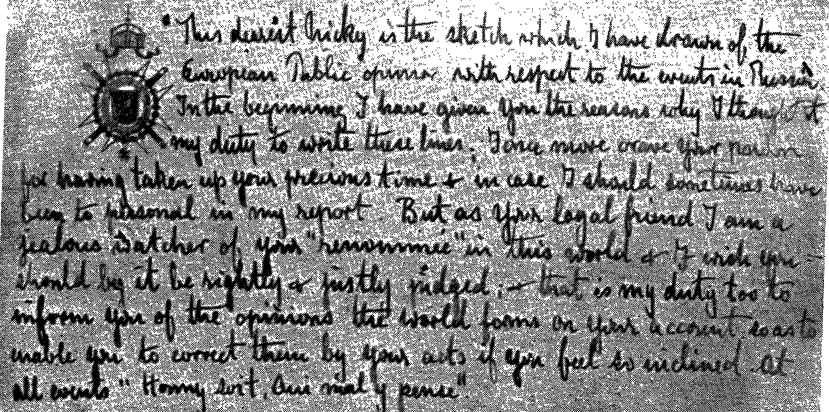 "This dearest Nicky is the sketch which I have drawn of the
European Public opinion with respect to the events in Russia.
In the beginning I have given you the reasons why I thought it
my duty to write these lines. I once more crave your pardon
for having taken up your precious time & in case I should sometimes have
been to personal in my report. But as your loyal friend I am a
jealous watcher of your "renommée" in this world & I wish you
should by it be rightly & justly judged; & that is my duty too to
inform you of the opinions the world forms on your account so as to
enable you to correct them by your acts if you feel so inclined. At
all events "Honny soit, qui mal y pense"